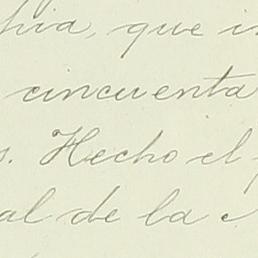 hia, que i
cincuenta
s. Hecho el
al de la